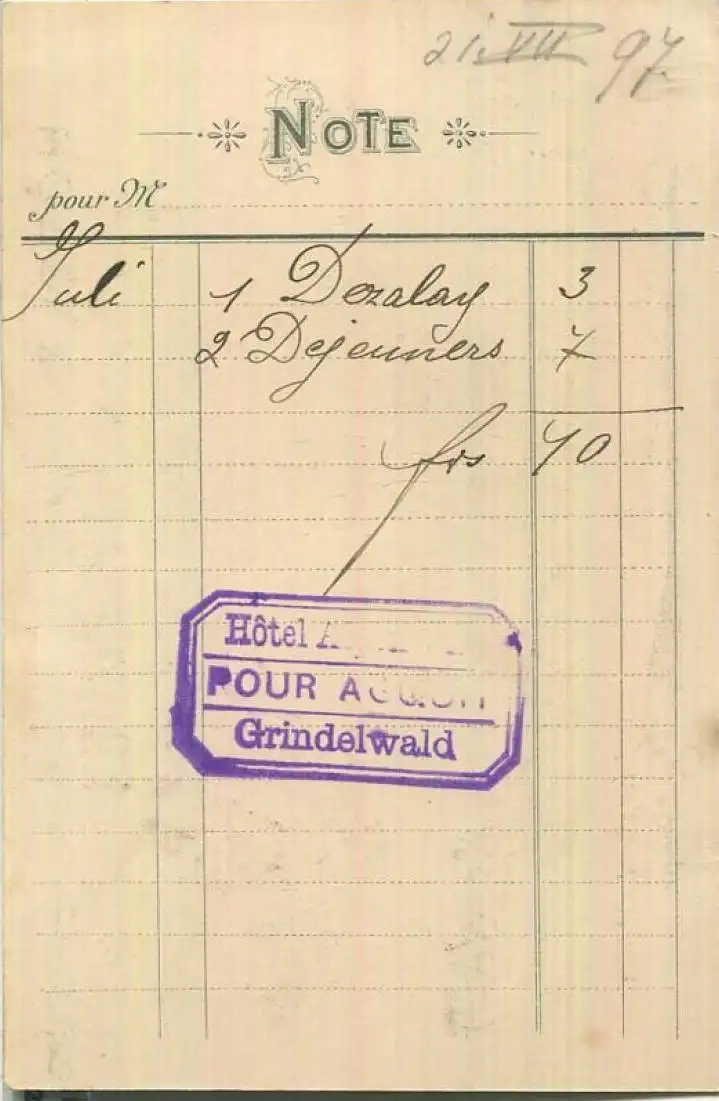 21. VII 97
NOTE
pour M
Juli 1 Dezalay 3
2 Dejeuners 7
frs 10
Hôtel
POUR ACQUIT
Grindelwald